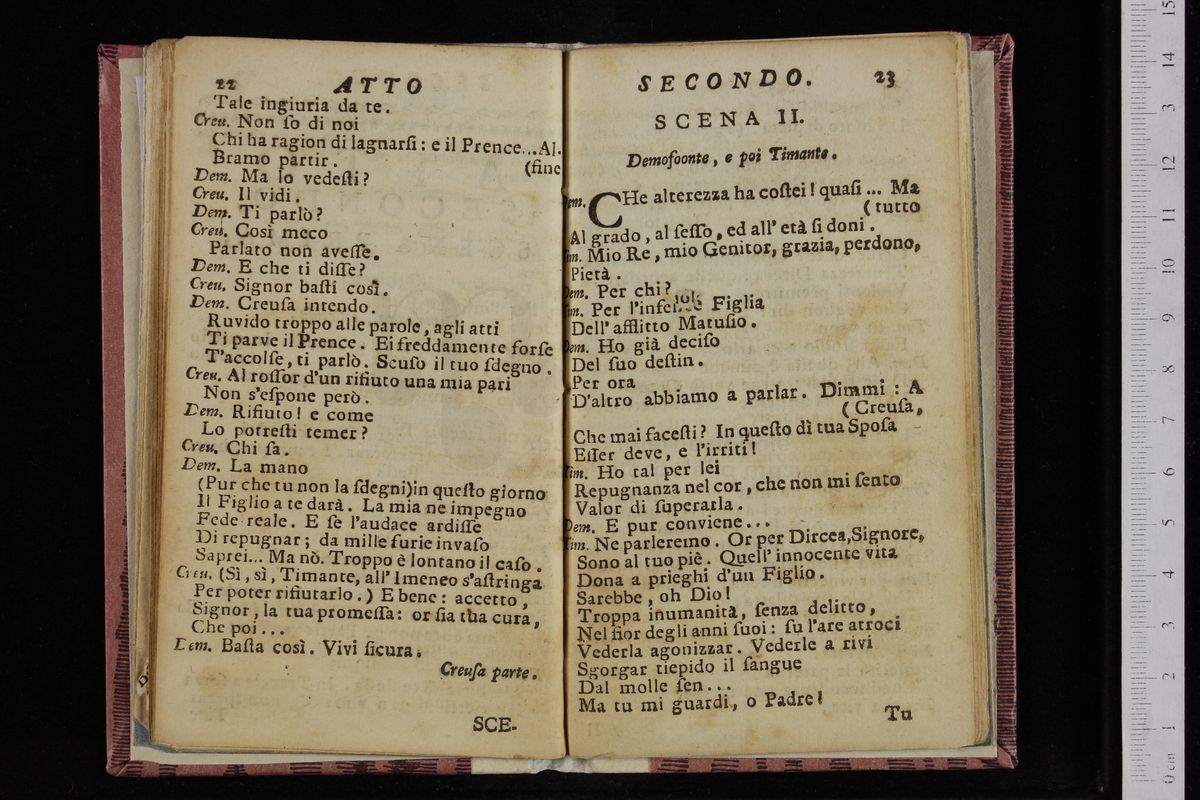 22 ATTO
Tale ingiuria da te.
Creu. Non ſo di noi
Chi ha ragion di lagnarſi: e il Prence...Al.
(fine
Bramo partir.
Dem. Ma lo vedeſti?
Creu. Il vidi.
Dem. Ti parlò?
Creu. Così meco
Parlato non aveſſe.
Dem. E che ti diſſe?
Creu. Signor baſti così.
Dem. Creuſa intendo.
Ruvido troppo alle parole, agli atti
Ti parve il Prence. Ei freddamente forſe
T'accolſe, ti parlò. Scuſo il tuo ſdegno.
Creu. Al roſſor d'un rifiuto una mia pari
Non s'eſpone però.
Dem. Rifiuto! e come
Lo potreſti temer?
Creu. Chi ſa.
Dem. La mano
(Pur che tu non la ſdegni)in queſto giorno
Il Figlio a te darà. La mia ne impegno
Fede reale. E ſe l'audace ardiſſe
Di repugnar; da mille furie invaſo
Saprei... Ma nò. Troppo è lontano il caſo.
Creu. (Sì, sì, Timante, all'Imeneo s'aſtringa
Per poter rifiutarlo.) E bene: accetto,
Signor, la tua promeſſa: or ſia tua cura,
Che poi...
Dem. Baſta così. Vivi ſicura.
Creuſa parte.
SCE-
SECONDO. 23
SCENA II.
Demofoonte, e poi Timante.
em. CHe alterezza ha coſtei! quaſi ... Ma
(tutto
Al grado, al ſeſſo, ed all'età ſi doni.
im. Mio Re, mio Genitor, grazia, perdono,
Pietà.
em. Per chi?
im. Per l'infelice Figlia
Dell'afflitto Matuſio.
em. Ho già deciſo
Del ſuo deſtin.
Per ora
D'altro abbiamo a parlar. Dimmi: A
(Creuſa,
Che mai faceſti? In queſto dì tua Spoſa
Eſſer deve, e l'irriti!
im. Ho tal per lei
Repugnanza nel cor, che non mi ſento
Valor di ſuperarla.
Dem. E pur conviene...
im. Ne parleremo. Or per Dircea,Signore,
Sono al tuo piè. Quell'innocente vita
Dona a prieghi d'un Figlio.
Sarebbe, oh Dio!
Troppa inumanità, ſenza delitto,
Nel fior degli anni ſuoi: ſu l'are atroci
Vederla agonizzar. Vederle a rivi
Sgorgar tiepido il ſangue
Dal molle ſen...
Ma tu mi guardi, o Padre!
Tu